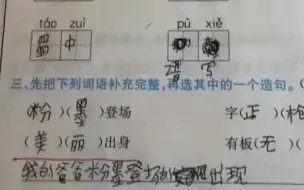 táo zuì pǔ xiě
墨 中
谱 写
三、先把下列词语补充完整,再选其中的一个造句。
(粉)(墨)登场 字(正)(枪
(美)(丽)出身 有板(无)(
我的爸爸粉墨登场的 出现